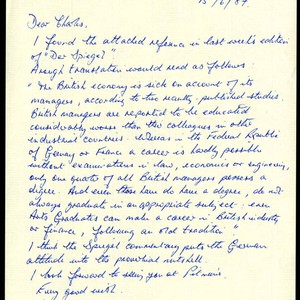 15/6/87.
Dear Charles,
I found the attached reference in last week's edition
of "Der Spiegel"
A rough translation would read as follows
"The British economy is sick on account of its
managers, according to two recently-published studies.
British managers are reported to be educated
considerably worse than their colleagues in other
industrial countries. Whereas in the Federal Republic
of Germany or France a career is hardly possible
without examinations in law, economics or engineering,
only one quarter of all British managers possess a
degree. And even those who do have a degree, do not
always graduate in an appropriate subject: even
Arts Graduates can make a career in British industry
or finance, 'following an old tradition'."
I think the Spiegel commentary puts the German
attitude into the proverbial nutshell.
I look forward to seeing you at
Every good wish.